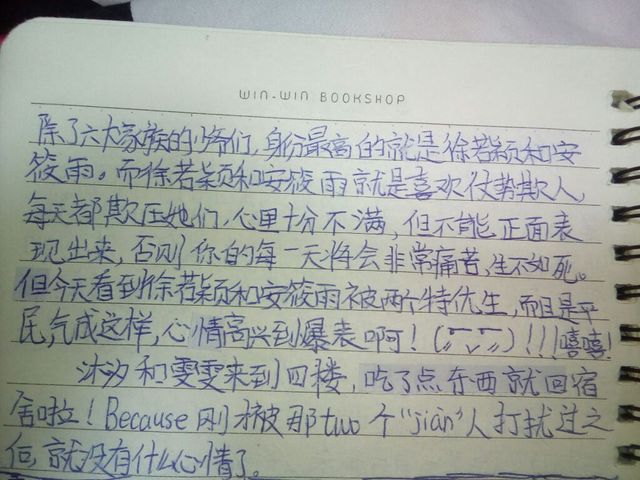 WIN-WIN BOOKSHOP
除了六大家族的少爷们,身份最高的就是徐若颖和安
筱雨。而徐若颖和安筱雨就是喜欢仗势欺人,
每天都欺压她们,心里十分不满,但不能正面表
现出来,否则你的每一天将会非常痛苦,生不如死。
但今天看到徐若颖和安筱雨被两个特优生,而且是平
民,气成这样,心情高兴到爆表啊!(=^v^=)!!!嘻嘻!
沐汐和雯雯来到四楼,吃了点东西就回宿
舍啦!Because刚被那two个“jiàn”人打扰过之
后,就没有什么心情了。